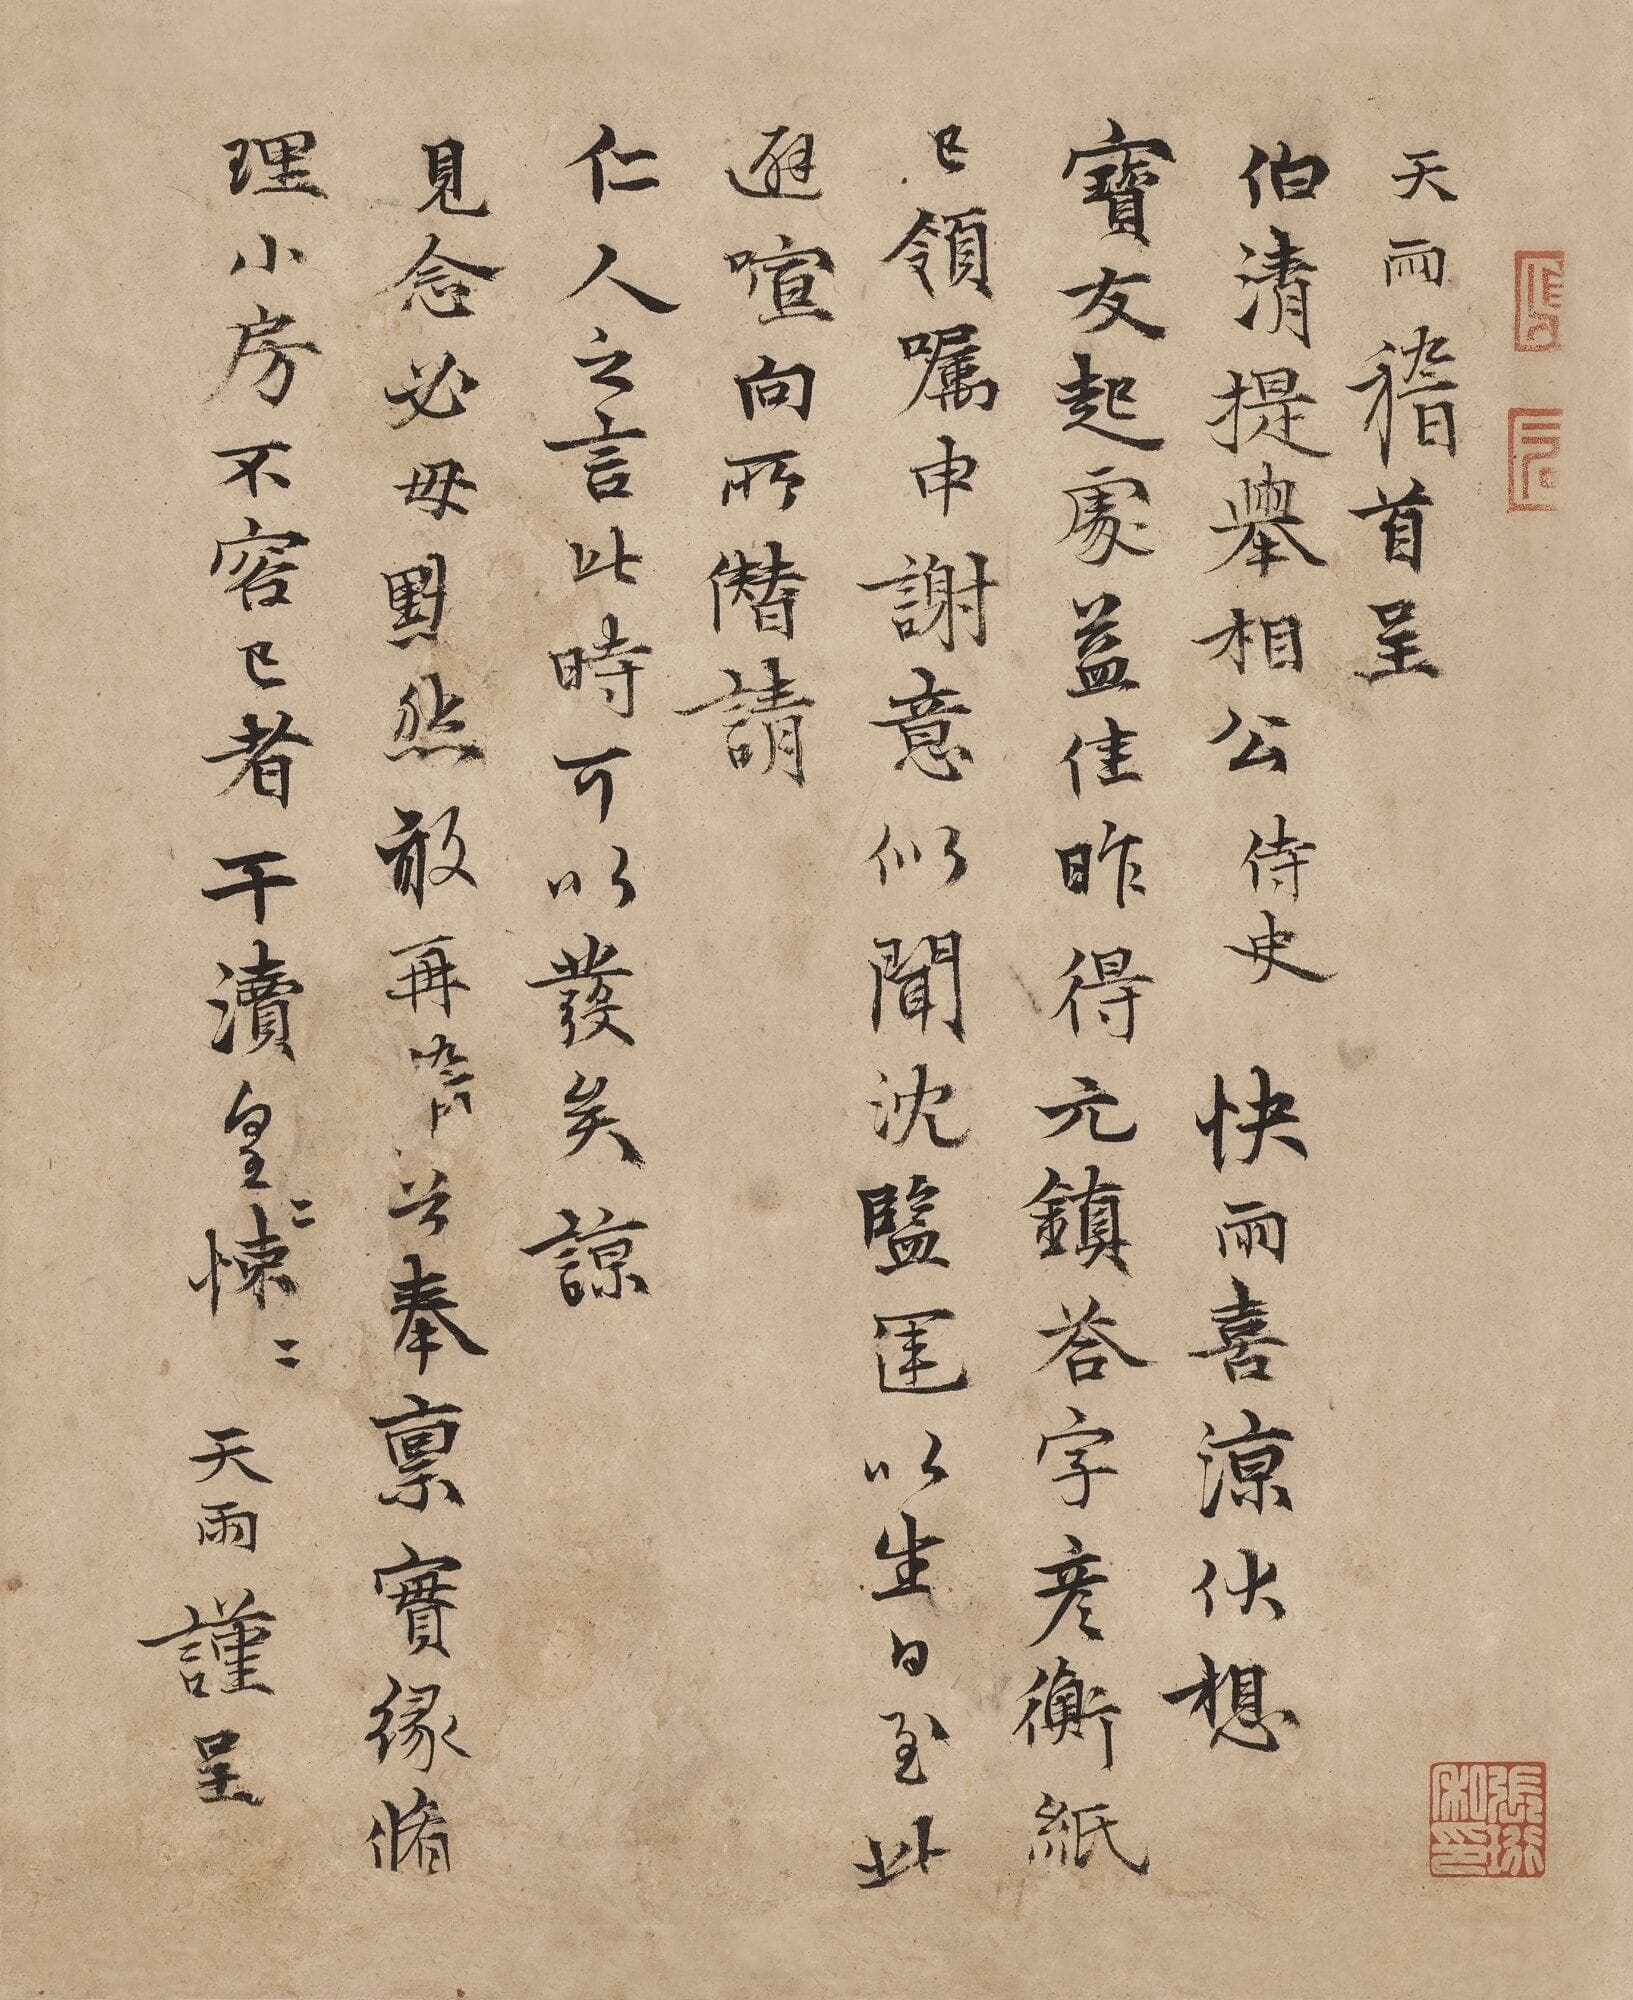 天雨稽首呈
伯清提舉相公侍史 快雨喜涼伏想
寶友起處益佳昨得元鎮荅字彥衡紙
已領囑申謝意似聞沈鹽運以生日至此
避喧向所僭請
仁人之言此時可以發矣諒
見念必毋固然敢再 奉稟實緣脩
理小房不容已者干瀆皇〻悚〻 天雨謹呈